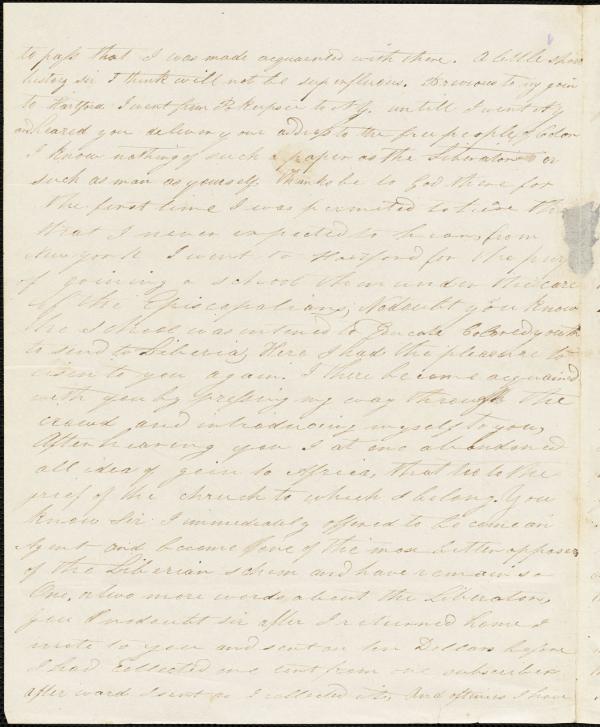 to pass that I was made acquainted with there. A little short
history sir I think will not be superfluous. Previous to my goin
to Hartford I went from Pokeepsie to N.Y. untill I went N Y
and heared you deliver your address to the free people of Color
I know nothing of such a paper as the Liberator or
such as man as yourself. Thanks be to God there for
the first time I was permited to heare the
that I never expected to hear, from
New york I went to Hartford for the purp
of goining a school then under the care
of the Episcopalians, Nodoubt you know
the school was intened to Educate Colored youth
to send to Liberia, Here I had the pleasure to
listen to you again. I there become acquained
with you by pressing my way through the
crowd and introducing myself to you,
After hearing you I at one abandoned
all idea of goin to Africa, that too to the
greef of the chruch to which I belong. You
know Sir I immediately offered to be come an
Agent and become one of the most bitter opposers
of the Liberian schem and have remain so
One, or two more words about the Liberator,
you nodoubt sir after I returned home I
wrote to you and sent on ten Dollars before
I had collected one cent from one subscriber
after ward I sent as I collected it, And oftimes I have